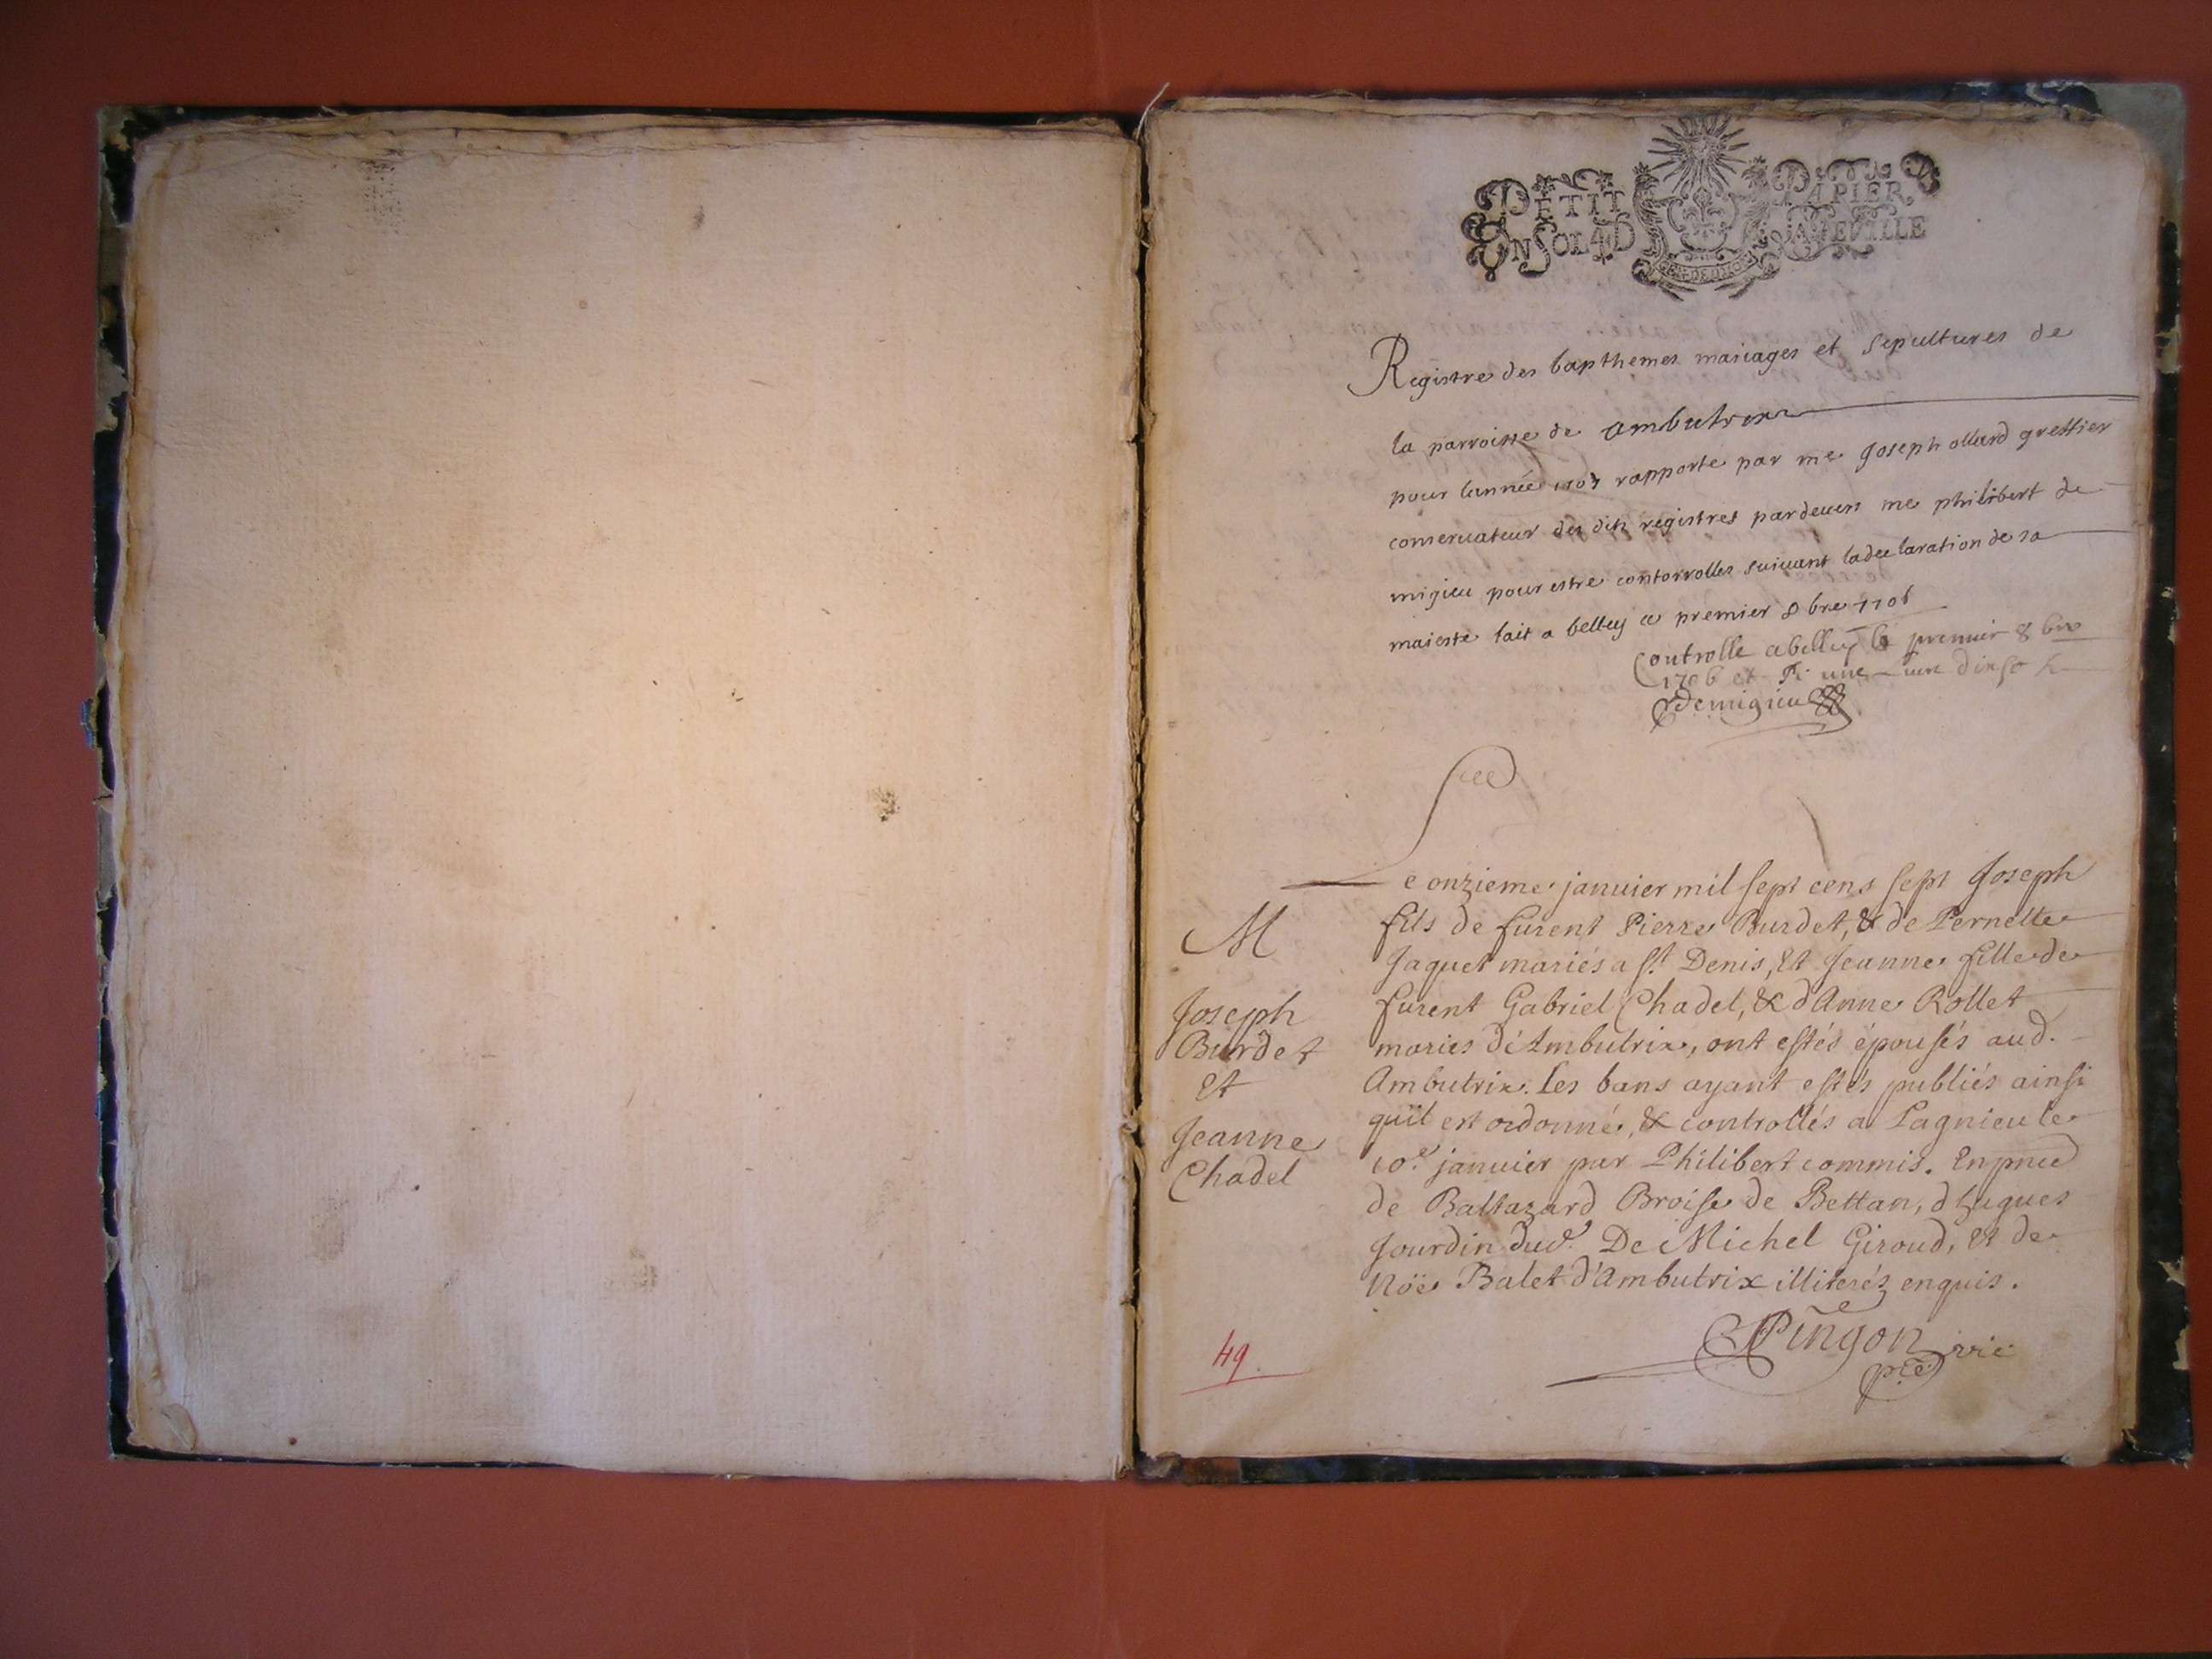 PETIT PAPIER
UN SOL 4 D LA FEUILLE
Registre des bapthemes mariages et sepultures de
la parroisse de Ambutrix
pour lannée 1707 rapporte par me Joseph ollard greffier
conservateur des dits registres pardevers me philibert de
migieu pour estre controrolles suivant ladeclaration de sa
majesté fait a belley ce premier 8bre 1706
Controlle abelley le premier 8bre
1706 et une dix so
Demigieu
Le onzieme januier mil sept cens sept Joseph
fils de furent Pierre Burdet, & de Pernette
Jaquet mariés a St Denis, Et Jeanne fille de
furent Gabriel Chadel, & d'Anne Rollet
mariés d'Ambutrix, ont estés épousés aud.
Ambutrix. Les bans ayant estés publiés ainsi
quil est ordonné, & controllés a Lagnieu le
10e januier par Philibert commis. En pnce
de Baltazard Broise de Bettan, d'hugues
Jourdin dud. De Michel Giroud, et de
Nöe Balet d'Ambutrix illiterés enquis.
Pingon vic
M
Joseph
Burdet
Et
Jeanne
Chadel
49.